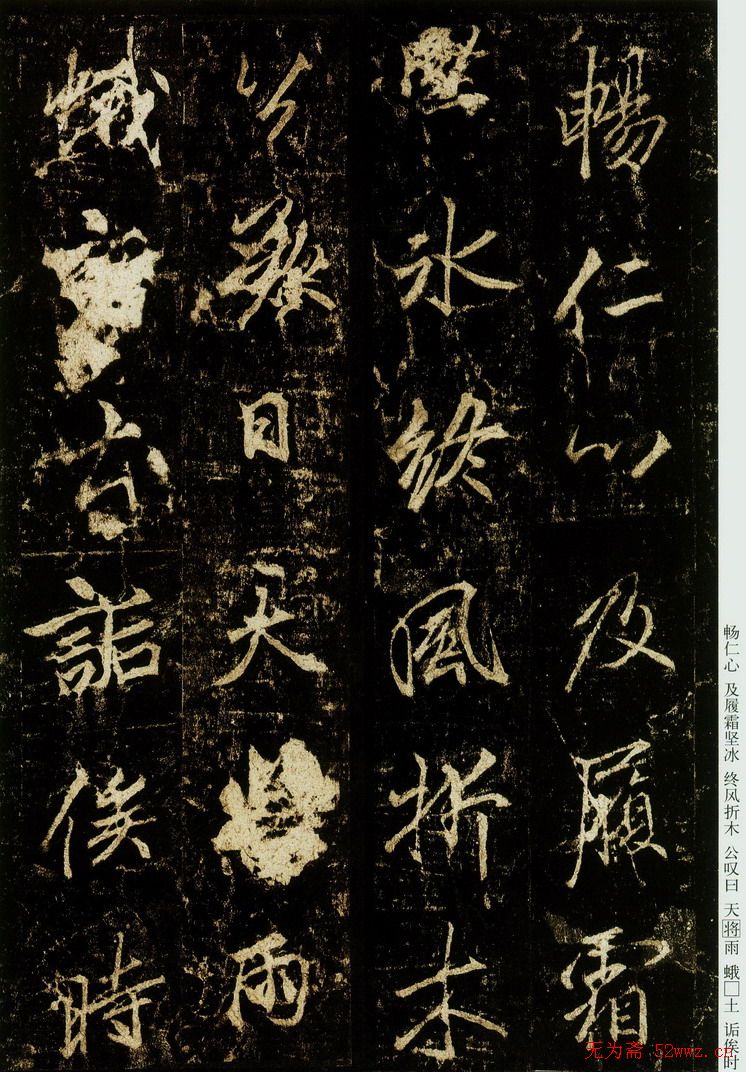 暢仁心及履霜
堅冰終風折木
公歎曰天雨
蛾詬俟時
畅仁心 及履霜坚冰 终风折木 公叹曰 天将雨 蛾□土 诟俟时
无为斋 52wwz.cn